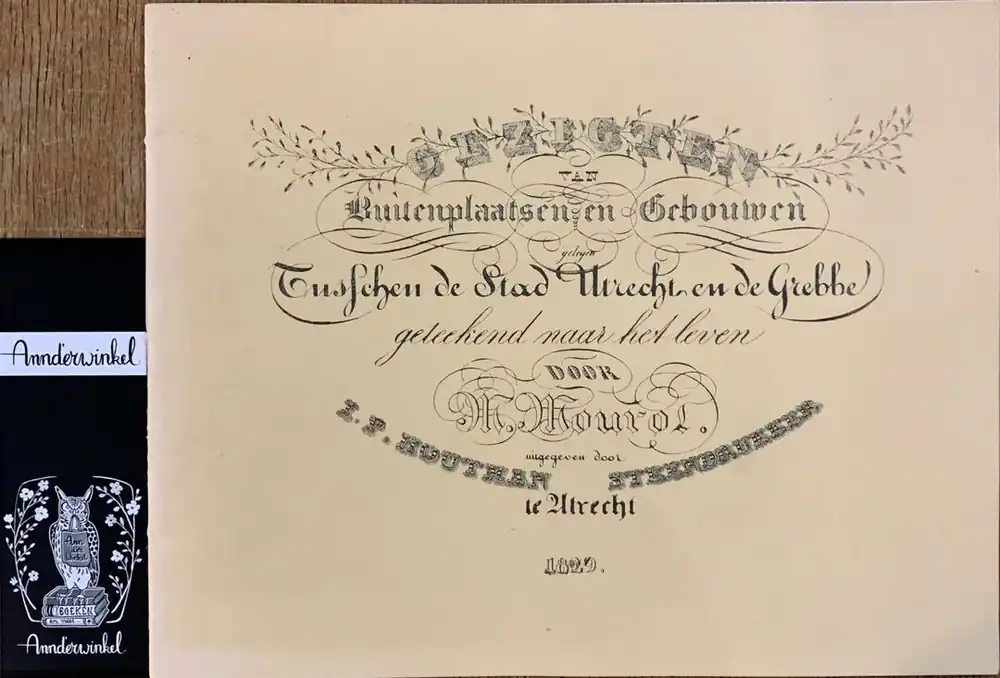 GEZIGTEN
VAN
Buitenplaatsen en Gebouwen
gelegen
Tusschen de Stad Utrecht en de Grebbe
geteekend naar het leven
DOOR
M. Mourot.
uitgegeven door
I. P. HOUTMAN STEENDRUKKER.
te Utrecht
1829.
Annderwinkel
BOEKEN
en meer
Annderwinkel